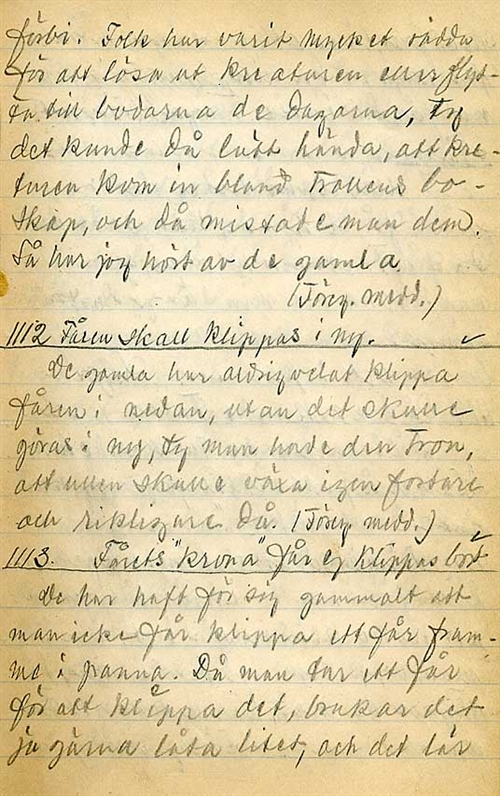 förbi. Folk har varit mycket rädda
för att lösa ut kreaturen eller flyt-
ta till bodarna de dagarna, ty
det kunde då lätt hända, att kre-
turen kom in bland trollens bo-
skap, och då mistade man dem.
Så har jag hört av de gamla.
(Föreg. medd.)
1112 Fåren skall klippas i ny.
De gamla har aldrig velat klippa
fåren i nedan, utan det skulle
göras i ny, ty man hade den tron,
att ullen skulle växa igen fortare
och rikligare då. (Föreg. medd.)
1113. Fårets "krona" får ej klippas bort
De har haft för seg gammalt att
man icke får klippa ett får fram-
me i panna. Då man tar ett får
för att klippa det, brukar det
ju gärna låta litet, och det lär